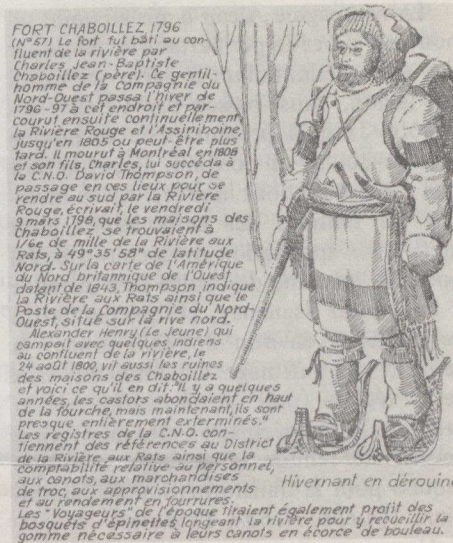 FORT CHABOILLEZ 1796
(N°57) Le fort fut bâti au con-
fluent de la rivière par
Charles Jean-Baptiste
Chaboillez (père). Ce gentil-
homme de la Compagnie du
Nord-Ouest passa l'hiver de
1796-97 à cet endroit et par-
courut ensuite continuellement
la Rivière Rouge et l'Assiniboine,
jusqu'en 1805 ou peut-être plus
tard. Il mourut à Montréal en 1808
et son fils, Charles, lui succéda à
la C.N.O. David Thompson, de
passage en ces lieux pour se
rendre au sud par la Rivière
Rouge, écrivait, le vendredi
9 mars 1798, que les maisons des
Chaboillez se trouvaient à
1/6e de mille de la Rivière aux
Rats, à 49° 35' 58" de latitude
Nord. Sur la carte de l'Amérique
du Nord britannique de l'Ouest
datent de 1843, Thompson indique
la Rivière aux Rats ainsi que le
Poste de la Compagnie du Nord-
Ouest, situé sur la rive nord.
Alexander Henry (Le Jeune) qui
campait avec quelques indiens
au confluent de la rivière, le
24 août 1800, vit aussi les ruines
des maisons des Chaboillez
et voici ce qu'il en dit: "Il y a quelques
années, les castors abondaient en haut
de la fourche, mais maintenant, ils sont
presque entièrement exterminés."
Les registres de la C.N.O. con-
tiennent des références au District
de la Rivière aux Rats ainsi que la
comptabilité relative au personnel,
aux canots, aux marchandises
de troc, aux approvisionnements
et au rendement en fourrures.
Hivernant en dérouine
Les "Voyageurs" de l'époque tiraient également profit des
bosquets d'épinettes longeant la rivière pour y recueillir la
gomme nécessaire à leurs canots en écorce de bouleau.